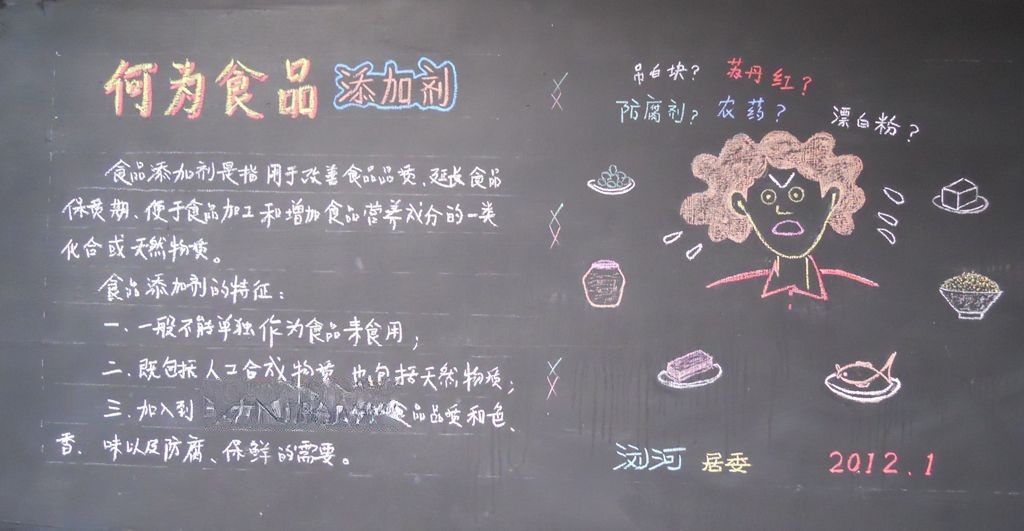 何为食品添加剂
食品添加剂是指用于改善食品品质、延长食品
保质期、便于食品加工和增加食品营养成分的一类
化合或天然物质。
食品添加剂的特征：
一、一般不能单独作为食品来食用；
二、既包括人工合成物质 也包括天然物质；
三、加入到 食品品质和色、
香、味以及防腐、保鲜的需要。
吊白块？ 苏丹红？
防腐剂？ 农药？ 漂白粉？
浏河 居委 2012.1